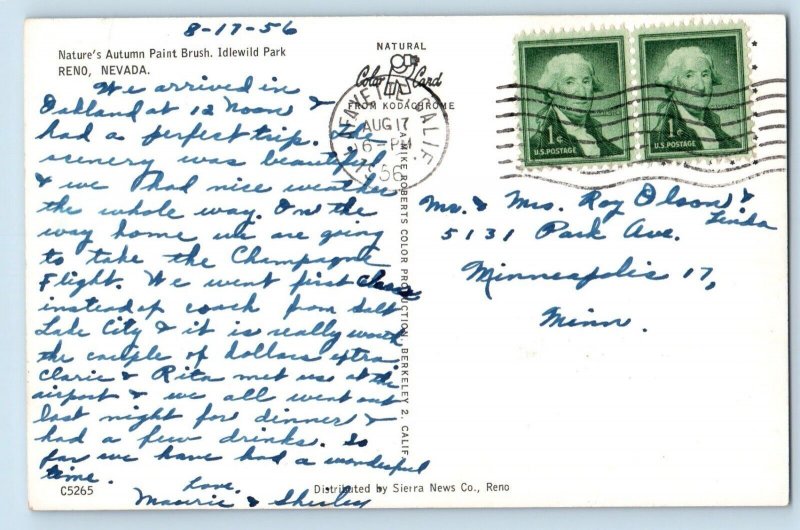 8-17-56
Nature's Autumn Paint Brush. Idlewild Park
RENO, NEVADA.
We arrived in
Oakland at 12 Noon &
had a perfect trip. The
scenery was beautiful
& we had nice weather
the whole way. On the
way home we are going
to take the Champagne
Flight. We went first class
instead of coach from Salt
Lake City & it is really worth
the couple of dollars extra.
Claric & Rita met us at the
airport & we all went out
last night for dinner &
had a few drinks. So
far we have had a wonderful
time.
Love,
Maurie & Shirley
C5265
Distributed by Sierra News Co., Reno
NATURAL
Color Card
FROM KODACHROME
MIKE ROBERTS COLOR PRODUCTION, BERKELEY 2, CALIF.
LAFAYETTE CALIF.
AUG 17
6 - PM
1956
1c
U.S. POSTAGE
1c
U.S. POSTAGE
Mr. & Mrs. Roy Olson &
Linda
5131 Park Ave.
Minneapolis 17,
Minn.